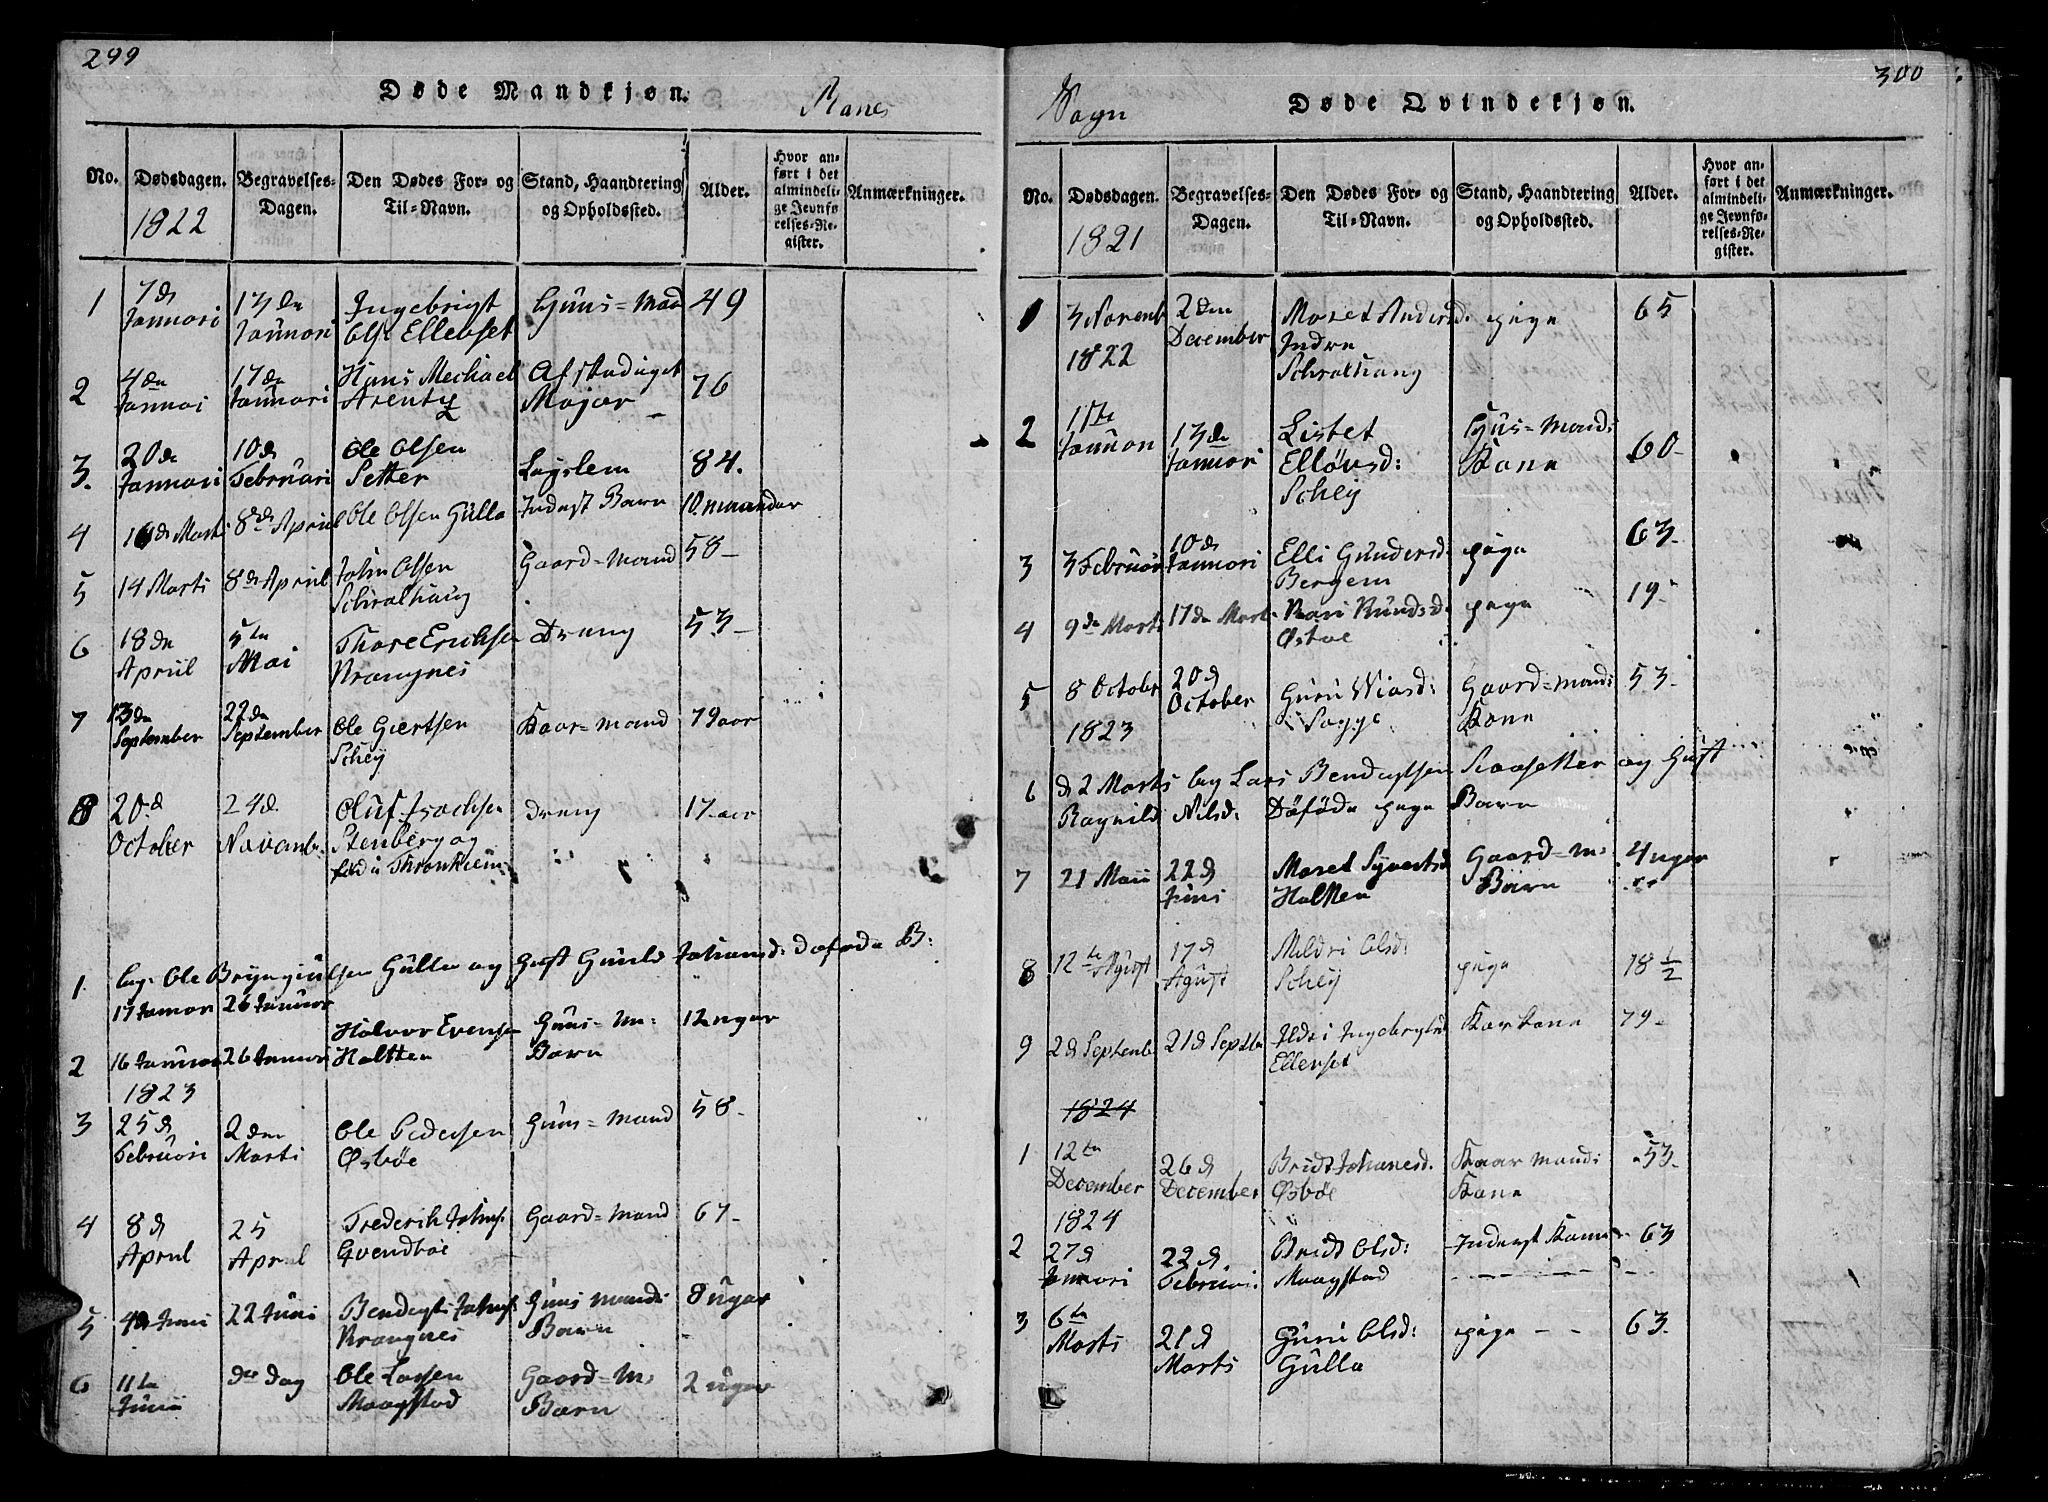 299
Døde Mandkjøn.
Ranes
No.
Dødsdagen.
Begravelses-Dagen.
Den Dødes For- og Til-Navn.
Stand, Haandtering og Opholdssted.
Alder.
Hvor anført i det almindelige Jevnførelses-Register.
Anmærkninger.
1822
1 7de Januari 13de Januari Ingebrigt Olse Ellevset Huus=Man 49
2 4de Januari 17de Januari Hans Mechael Arentz Afskediget Majær 76
3. 20de Januari 10de Februari Ole Olsen Setter Lægslem 84.
4 16de Marti 8de Apriil Ole Olsen Gulla Inderst Barn 10. maaneder
5 14 Marti 8de Apriil John Olsen Schralthaug Gaard=mand 58
6 18de Apriil 5te Mai Thore Ericksen Krangnes Dreng 53
7 13de September 22de September Ole Giertsen Schey Kaar=mand 79 aar
8 20.de October 24de. Novemb. Oluf Isachsen Stenberg og fød i Thronhiem Dreng 17 aar
1. Ole Bryngiulsen Gulla og Johansd: B:
17 Januar 26 Januar
2 16 Januar 26 Januar Halvor Evensen Haltten Huus=m: Barn 12 uger
1823
3 25de Februari 2den Marti Ole Pedersen Øsbøe Huus=mand 58
4 8de Apriil 25 Apriil Frederik Johns. Gvendbøe Gaard=mand 67
5 4de Juni 22 Juni Bendegt Johns. Krangnes Huus mands Barn 8 uger
6 11te Junii do dag Ole Larsen Maagstad Gaard=m: Barn 2 uger
300
Sogn
Døde Qvindekjøn.
No.
Dødsdagen.
Begravelses-Dagen.
Den Dødes For- og Til-Navn.
Stand, Haandtering og Opholdssted.
Alder.
Hvor anført i det almindelige Jevnførelses-Register.
Anmærkninger.
1821
1 3 Novemb 2den December Maret Andersd. Indre Schralthaug piga 65
1822
2 11te Januari 13de Januari Listet Elløvsd: Schey Huus=mands Kone 60
3 3 Februari 10de Januari Elli Gundersd. Bergem piga 63
4 9de Marti 17de Marti Kari Knudsd. Øsbøe piga 19
5 8 October 20de October Guru Wiasd: Sogge Gaard=mands Kone 53
1823
6 d 2 Marti Lars Bendegtsen Raasetter og
Ragnild Nilsd. Døføde piga Barn
7 21 Maii 22de Juni Maret Syvertsd. Haltten Gaard=m: Barn 4 uger
8 12te Agust 17de Agust Mildri Olsd: Schey piga 18 1/2
9 2de Septemb. 21de Septb. Ildri Ingebrigtsd Ellevset Kar kone 79
1824
1 12te December 26de December Bridt Johanesd. Øsbøe Kaar mands Kone 53
1824
2 27de Januari 22de. Februari. Bridt Olsd: Maagstad Inderst Kone 63
3 6te Marti 21de Marti Guru Olsd: Gulla piga 63